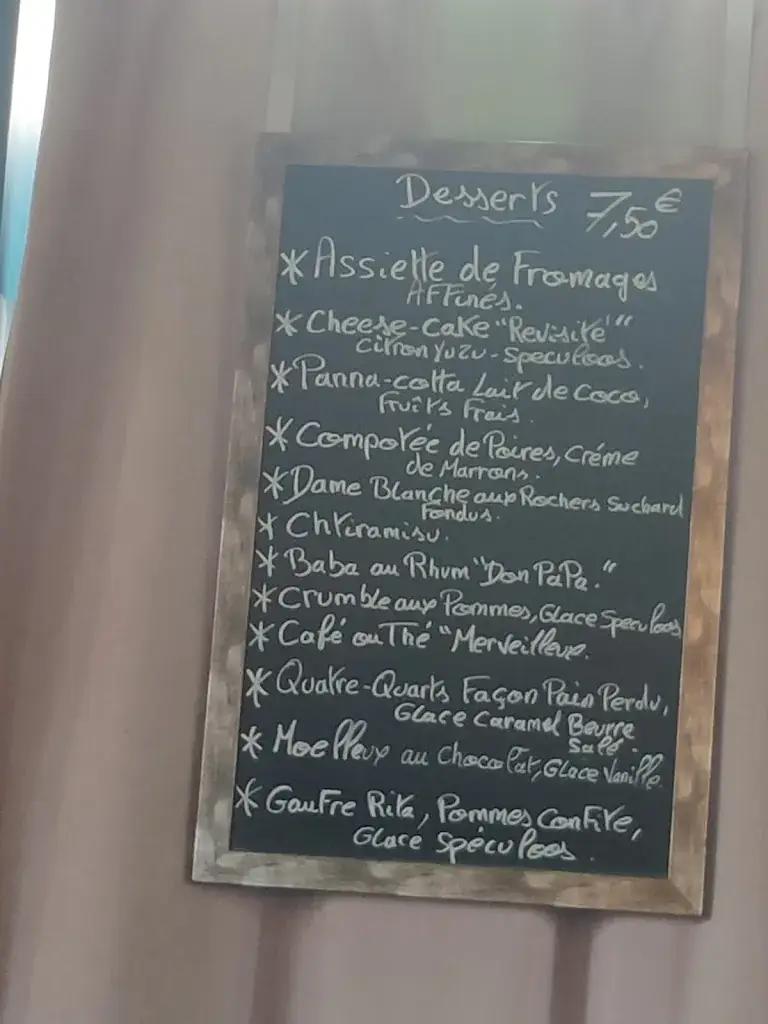 Desserts 7,50€
* Assiette de Fromages
Affinés.
* Cheese-cake "Revisité"
Citron Yuzu - Speculoos.
* Panna-cotta Lait de Coco,
Fruits Frais.
* Compotée de Poires, Créme
de Marrons.
* Dame Blanche aux Rochers Suchard
Fondus.
* Chtiramisu.
* Baba au Rhum "Don PaPa."
* Crumble aux Pommes, Glace Speculoos
* Café ou Thé "Merveilleux.
* Quatre-Quarts Façon Pain Perdu,
Glace Caramel Beurre
Salé.
* Moelleux au Chocolat, Glace Vanille.
* Gaufre Rita, Pommes Confite,
Glace Spéculoos.